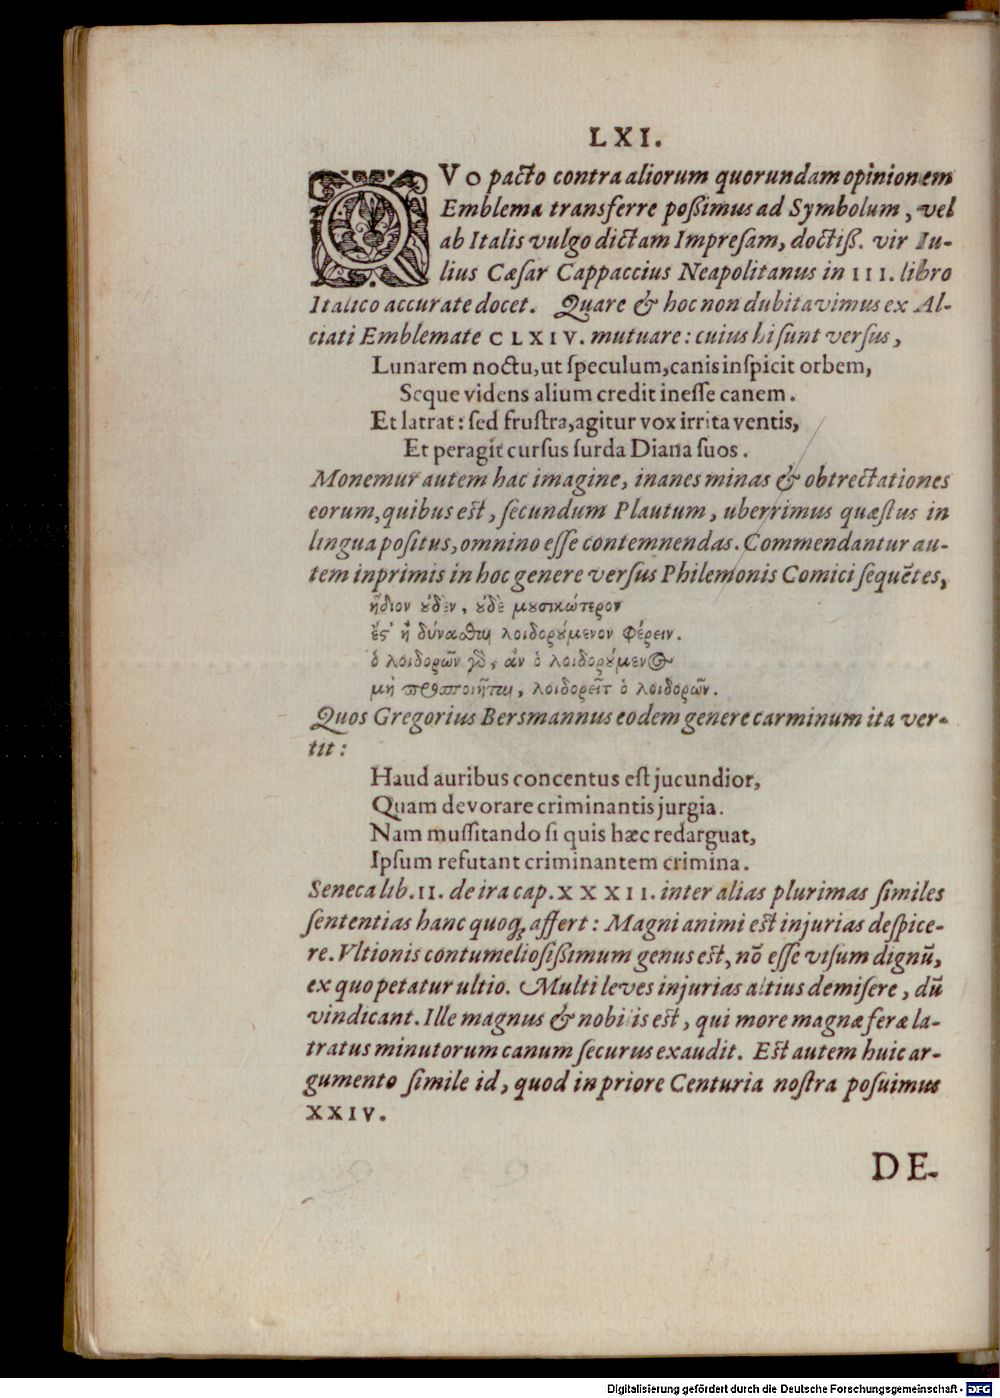 LXI.
QVO pacto contra aliorum quorundam opinionem
Emblema transferre poßimus ad Symbolum, vel
ab Italis vulgo dictam Impreſam, doctiß. vir Iu-
lius Cæſar Cappaccius Neapolitanus in III. libro
Italico accurate docet. Quare & hoc non dubitavimus ex Al-
ciati Emblemate CLXIV. mutuare: cuius hi ſunt verſus,
Lunarem noctu, ut ſpeculum, canis inſpicit orbem,
Seque videns alium credit ineſſe canem.
Et latrat: ſed fruſtra, agitur vox irrita ventis,
Et peragit curſus ſurda Diana ſuos.
Monemur autem hac imagine, inanes minas & obtrectationes
eorum, quibus est, ſecundum Plautum, uberrimus quæſtus in
lingua poſitus, omnino eſſe contemnendas. Commendantur au-
tem inprimis in hoc genere verſus Philemonis Comici ſequẽtes,
ἥδιον ȣ̓δὲν, ȣ̓δὲ μȣσικώτερον
ἔς' ἢ δύνασθαι λοιδορȣ́μενον φέρειν.
ὁ λοιδορῶν γδ, ἂν ὁ λοιδορȣ́μενος
μὴ προσποιῆται, λοιδορεῖτ ὁ λοιδορῶν.
Quos Gregorius Bersmannus eodem genere carminum ita ver-
tit:
Haud auribus concentus eſt jucundior,
Quam devorare criminantis jurgia.
Nam muſſitando ſi quis hæc redarguat,
Ipſum refutant criminantem crimina.
Seneca lib. II. de ira cap. XXXII. inter alias plurimas ſimiles
ſententias hanc quoq; affert: Magni animi est injurias deſpice-
re. Vltionis contumelioſißimum genus est, nõ eſſe viſum dignũ,
ex quo petatur ultio. Multi leves injurias altius demiſere, dũ
vindicant. Ille magnus & nobilis est, qui more magnæ feræ la-
tratus minutorum canum ſecurus exaudit. Est autem huic ar-
gumento ſimile id, quod in priore Centuria noſtra poſuimus
XXIV.
DE-
Digitalisierung gefördert durch die Deutsche Forschungsgemeinschaft - DFG